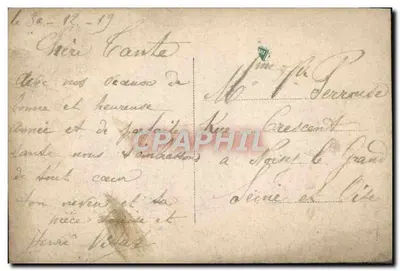 le 30-12-19
Chère Tante
avec nos vœux de
bonne et heureuse
année et de parfaite
santé nous t'embrassons
de tout cœur
ton neveu et ta
nièce Louise et
Henri
Mme Vve Perroude
Rue Crescent
à Noisy le Grand
Seine et Oise
CPARAMA.COM